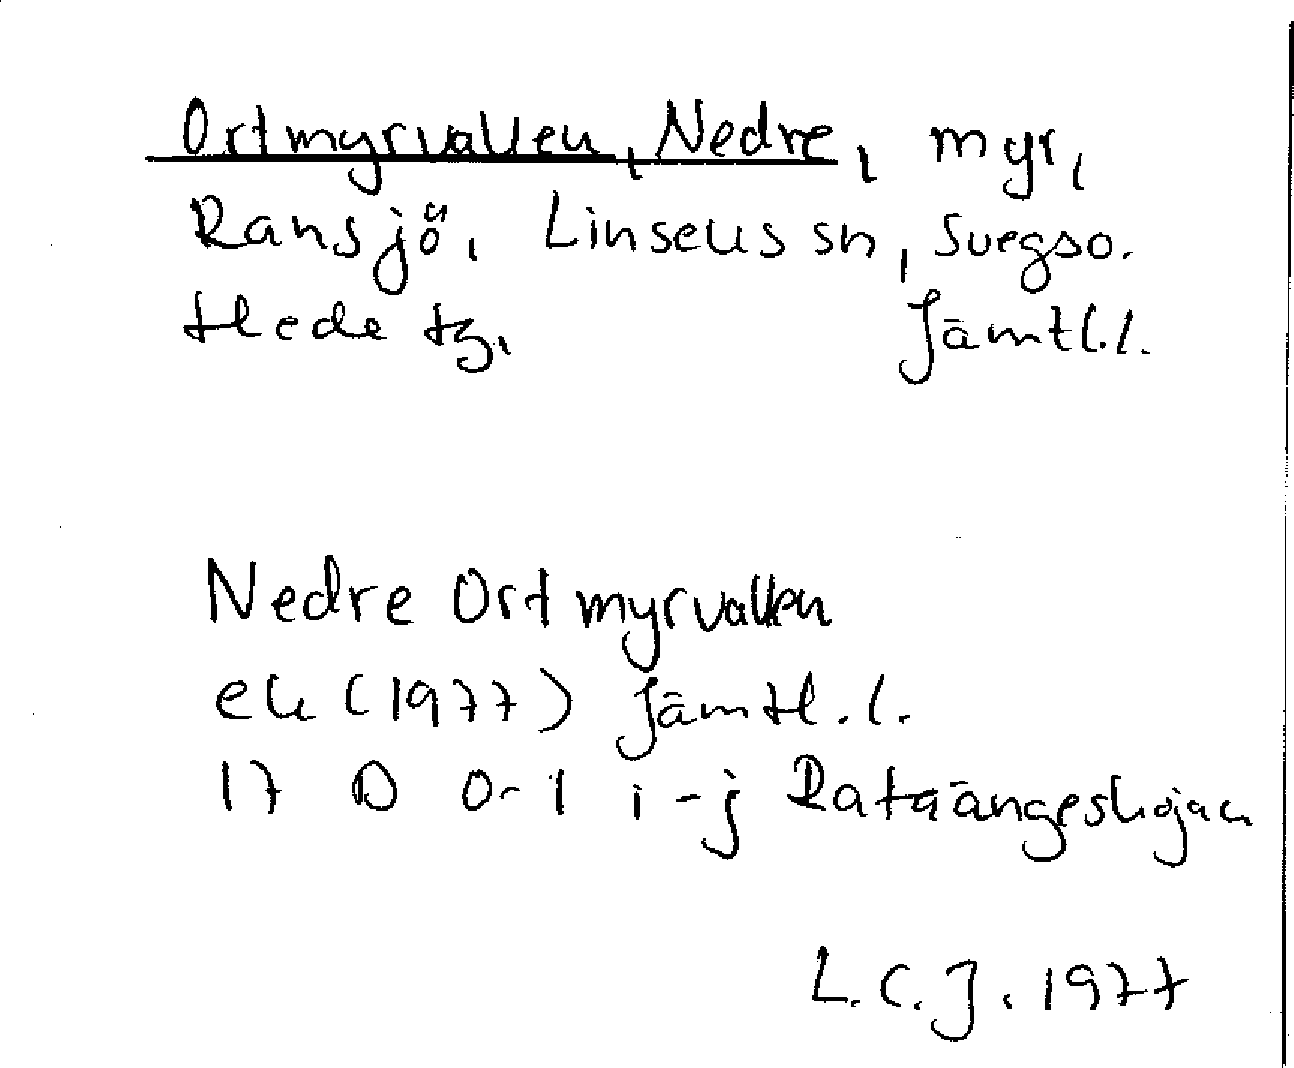 Ortmyrvallen, Nedre, myr,
Ransjö, Linsells sn, Svegs so.
Hede tg, Jämtl. l.
Nedre Ortmyrvallen
ek (1977) Jämtl. l.
17 D 0-1 i-j Rataängeshojan
L.C.J. 1977